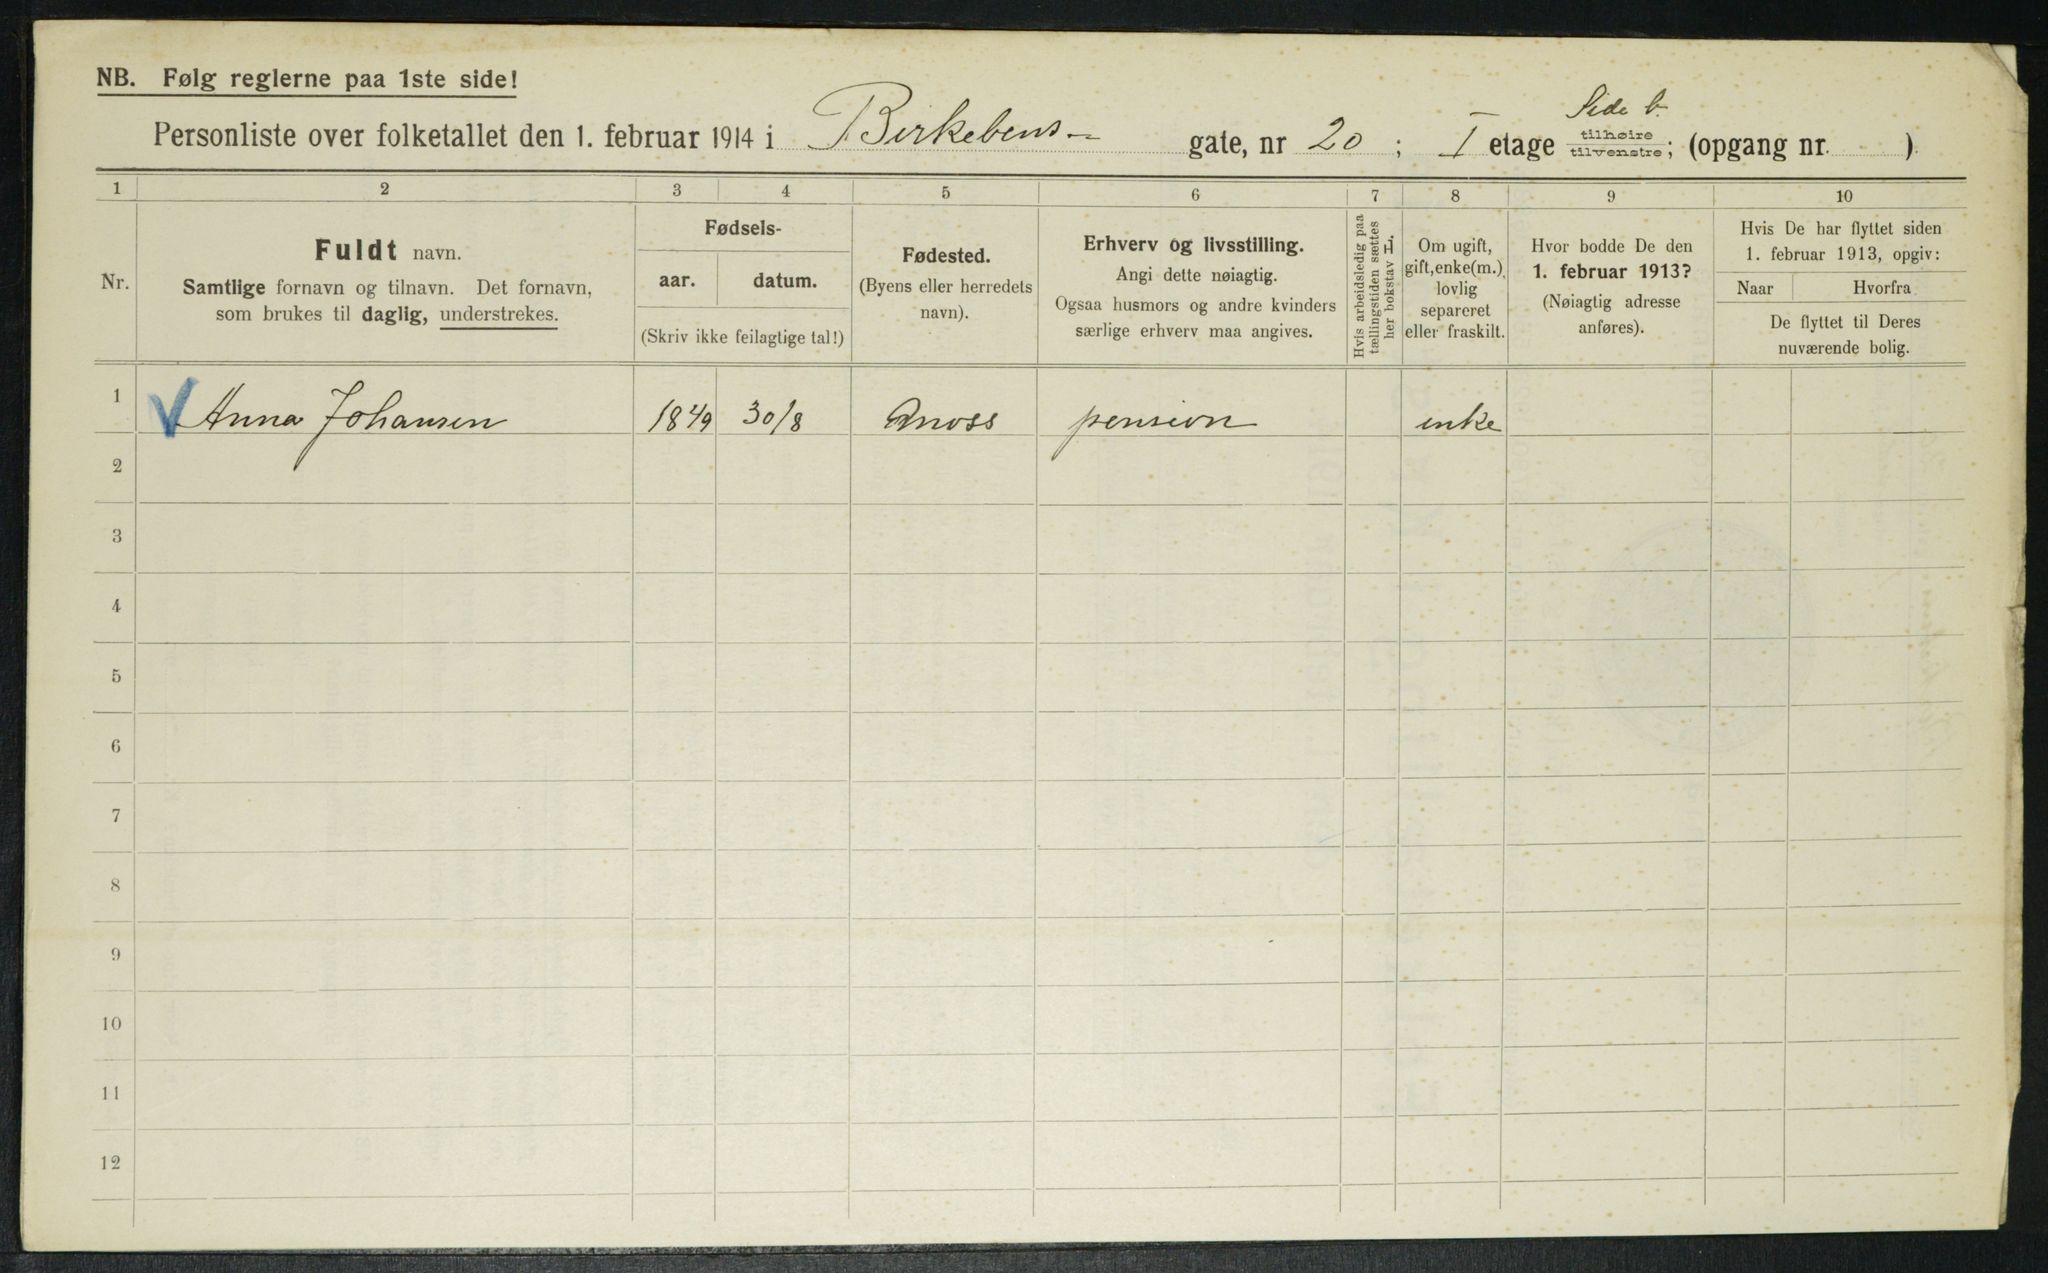 NB. Følg reglerne paa 1ste side!
Side b.
Personliste over folketallet den 1. februar 1914 i Birkebens- gate, nr 20; I etage tilhøire tilvenstre; (opgang nr. )
1 2 3 4 5 6 7 8 9 10
Nr.
Fuldt navn.
Samtlige fornavn og tilnavn. Det fornavn,
som brukes til daglig, understrekes.
Fødsels-
aar. datum.
(Skriv ikke feilagtige tal!)
Fødested.
(Byens eller herredets
navn).
Erhverv og livsstilling.
Angi dette nøiagtig.
Ogsaa husmors og andre kvinders
særlige erhverv maa angives.
Hvis arbeidsledig paa
tællingstiden sættes
her bokstav L.
Om ugift,
gift, enke(m.),
lovlig
separeret
eller fraskilt.
Hvor bodde De den
1. februar 1913?
(Nøiagtig adresse
anføres).
Hvis De har flyttet siden
1. februar 1913, opgiv:
Naar Hvorfra
De flyttet til Deres
nuværende bolig.
1 Anna Johansen 1849 30/8 Moss pension enke
2
3
4
5
6
7
8
9
10
11
12